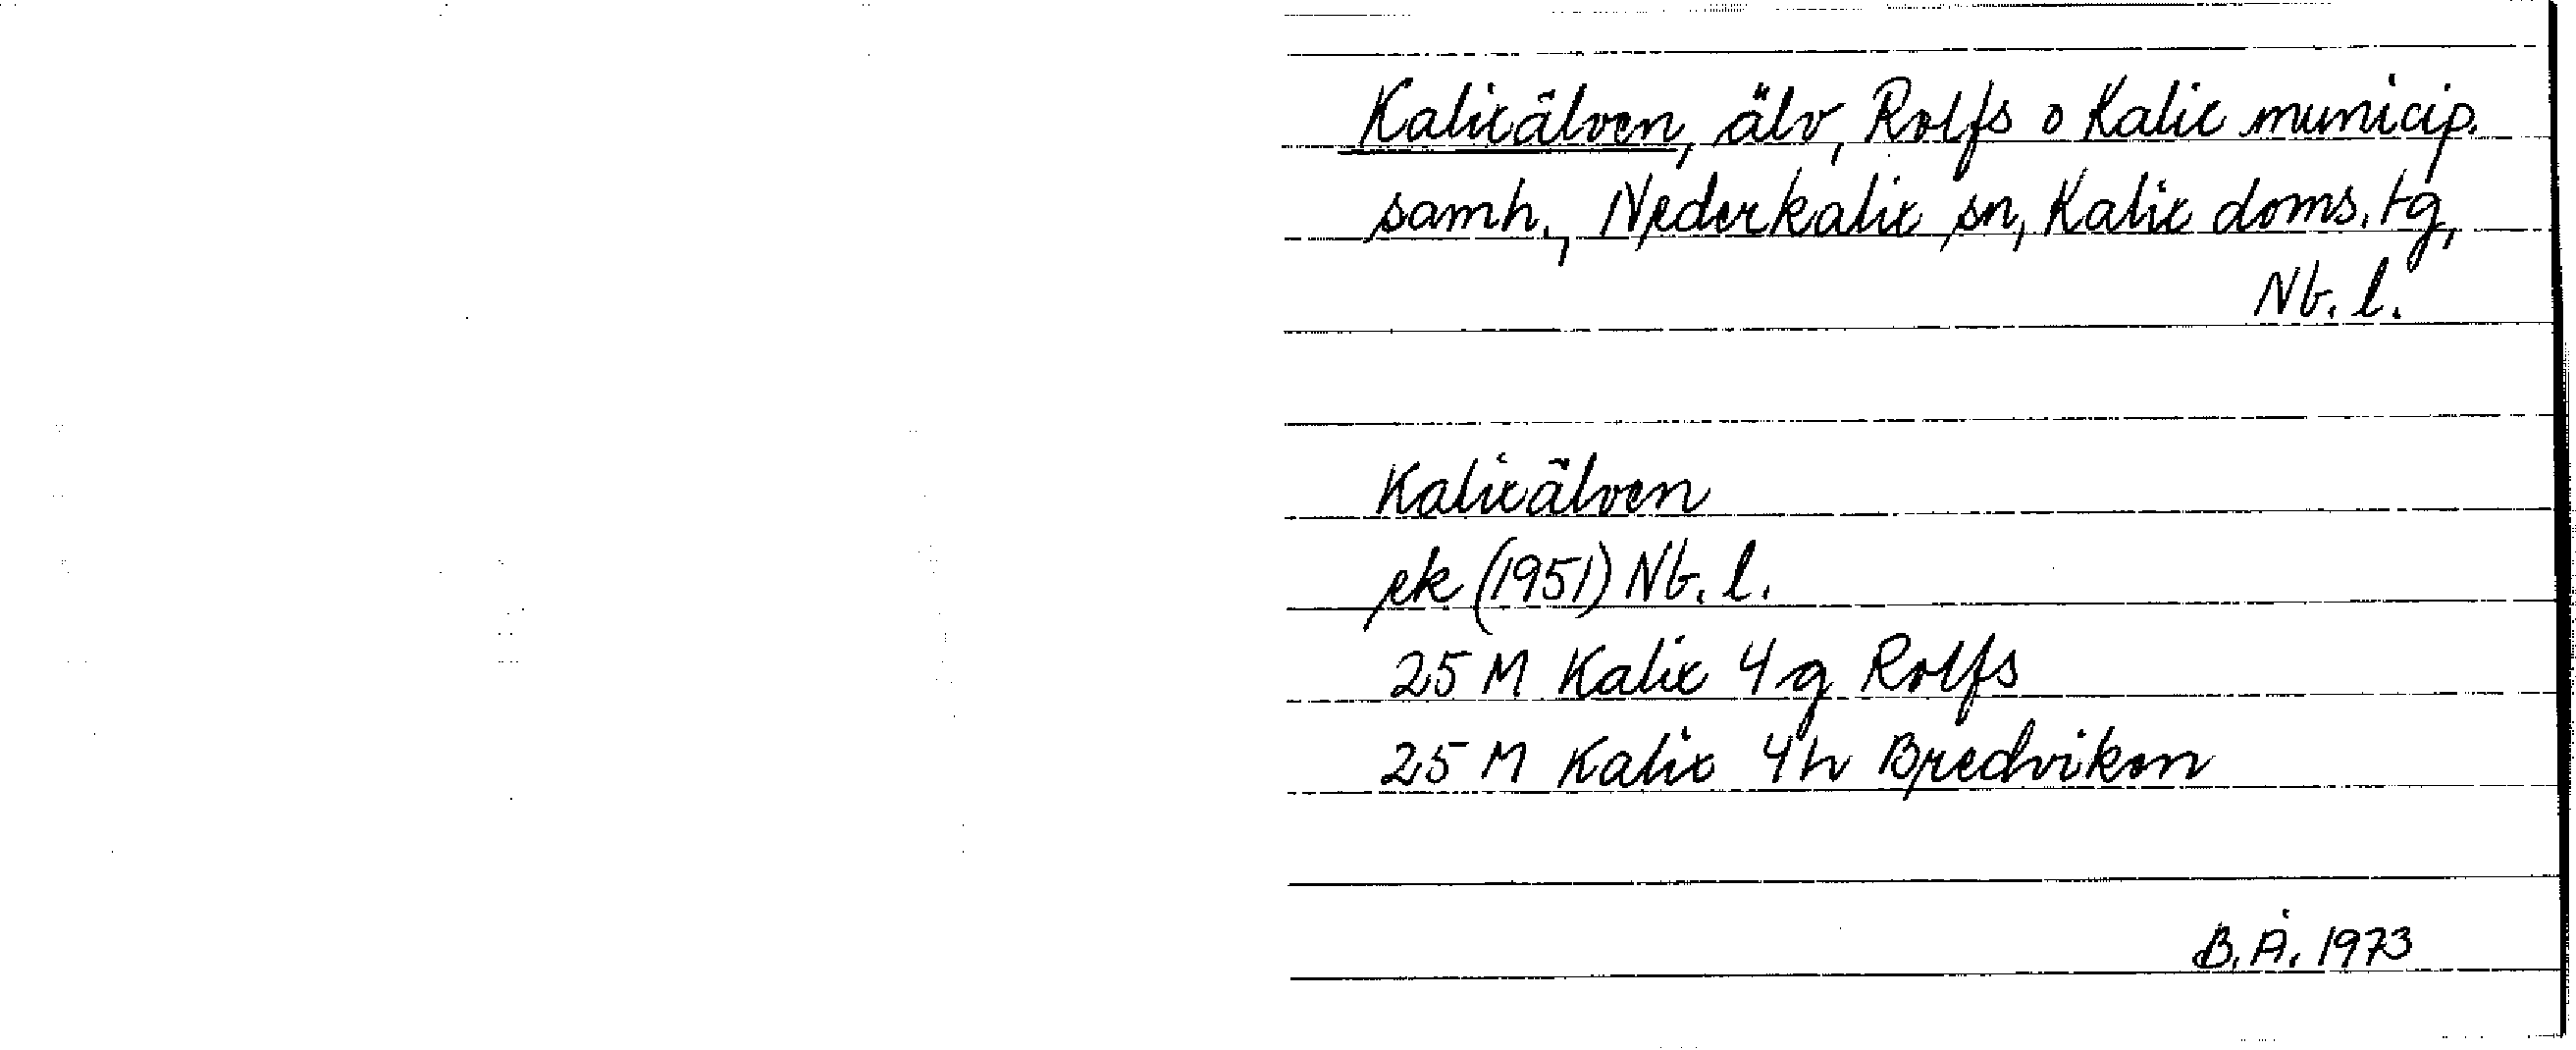 Kalixälven, älv, Rolfs o Kalix municip.
samh., Nederkalix sn, Kalix doms. tg,
Nb. l.
Kalixälven
ek (1951) Nb. l.
25 M Kalix 4 g Rolfs
25 M Kalix 4 h Bredviken
B. Å. 1973